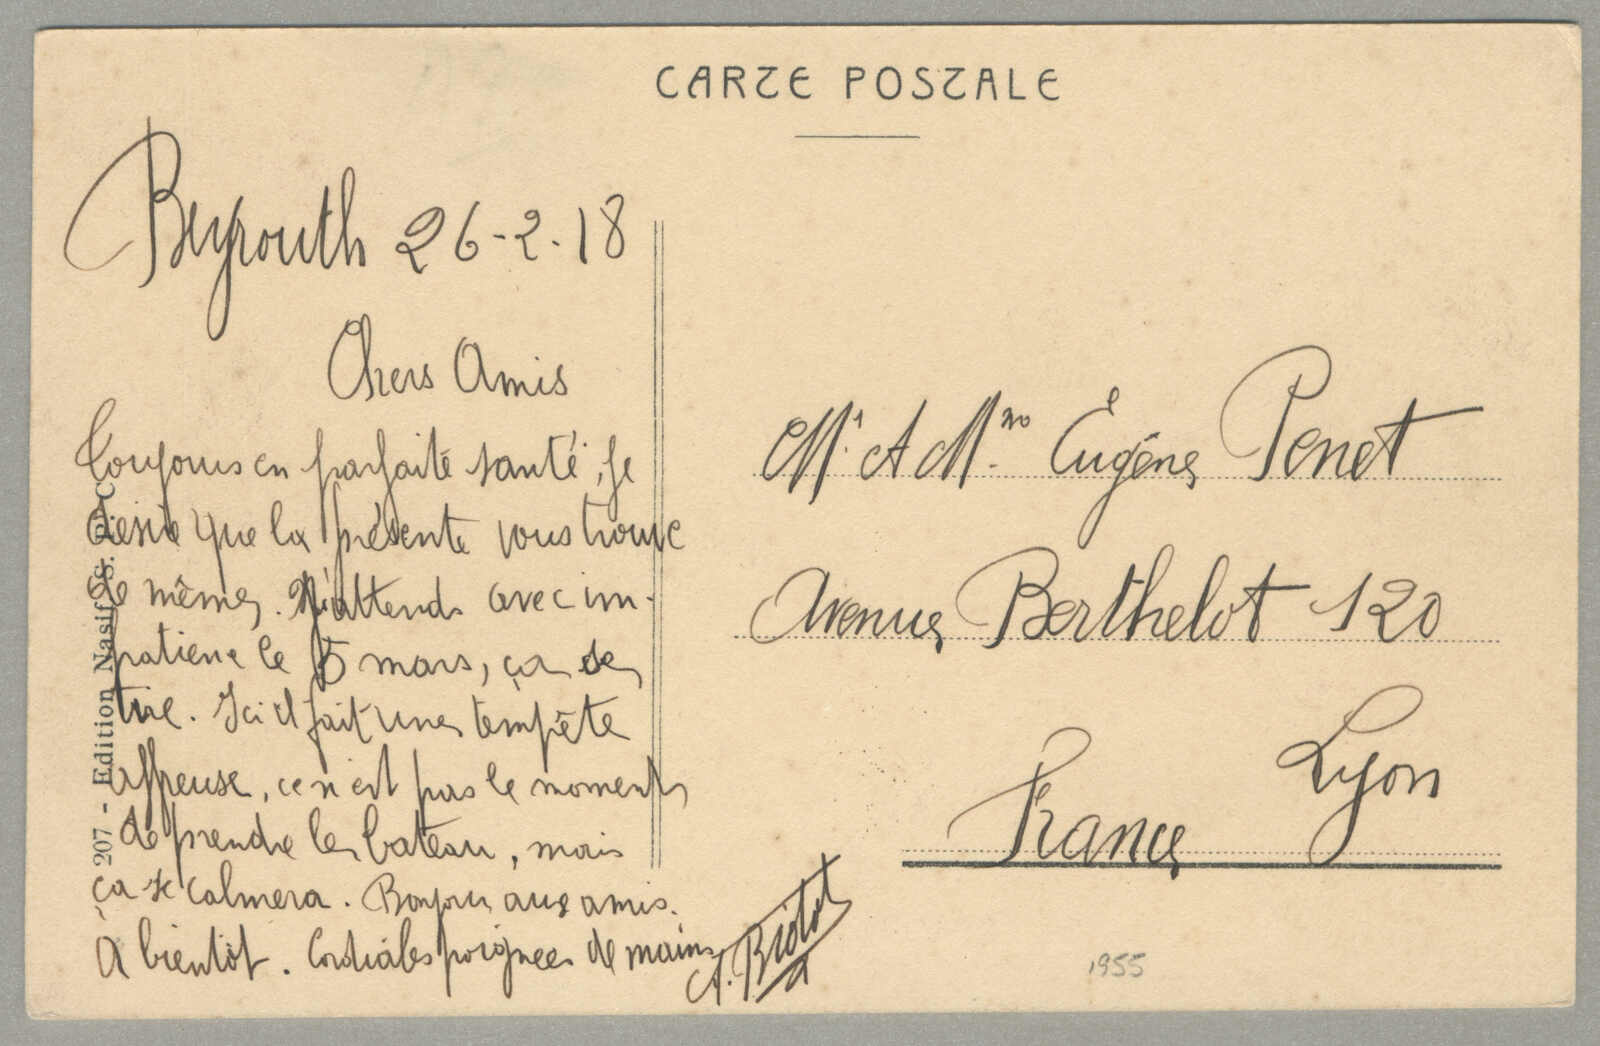 CARTE POSTALE
Beyrouth 26-2-18
Chers Amis
Toujours en parfaite santé, je
désire que la présente vous trouve
de même. J'attends avec im-
patience le 5 mars, ça se
tire. Ici il fait une tempête
affreuse, ce n'est pas le moment
de prendre le bateau, mais
ça se calmera. Bonjour aux amis.
A bientôt. Cordiales poignées de mains
A. Biolot
207 - Edition Nasif S.
Mr et Mme Eugène Penet
Avenue Berthelot 120
Lyon
France
1955